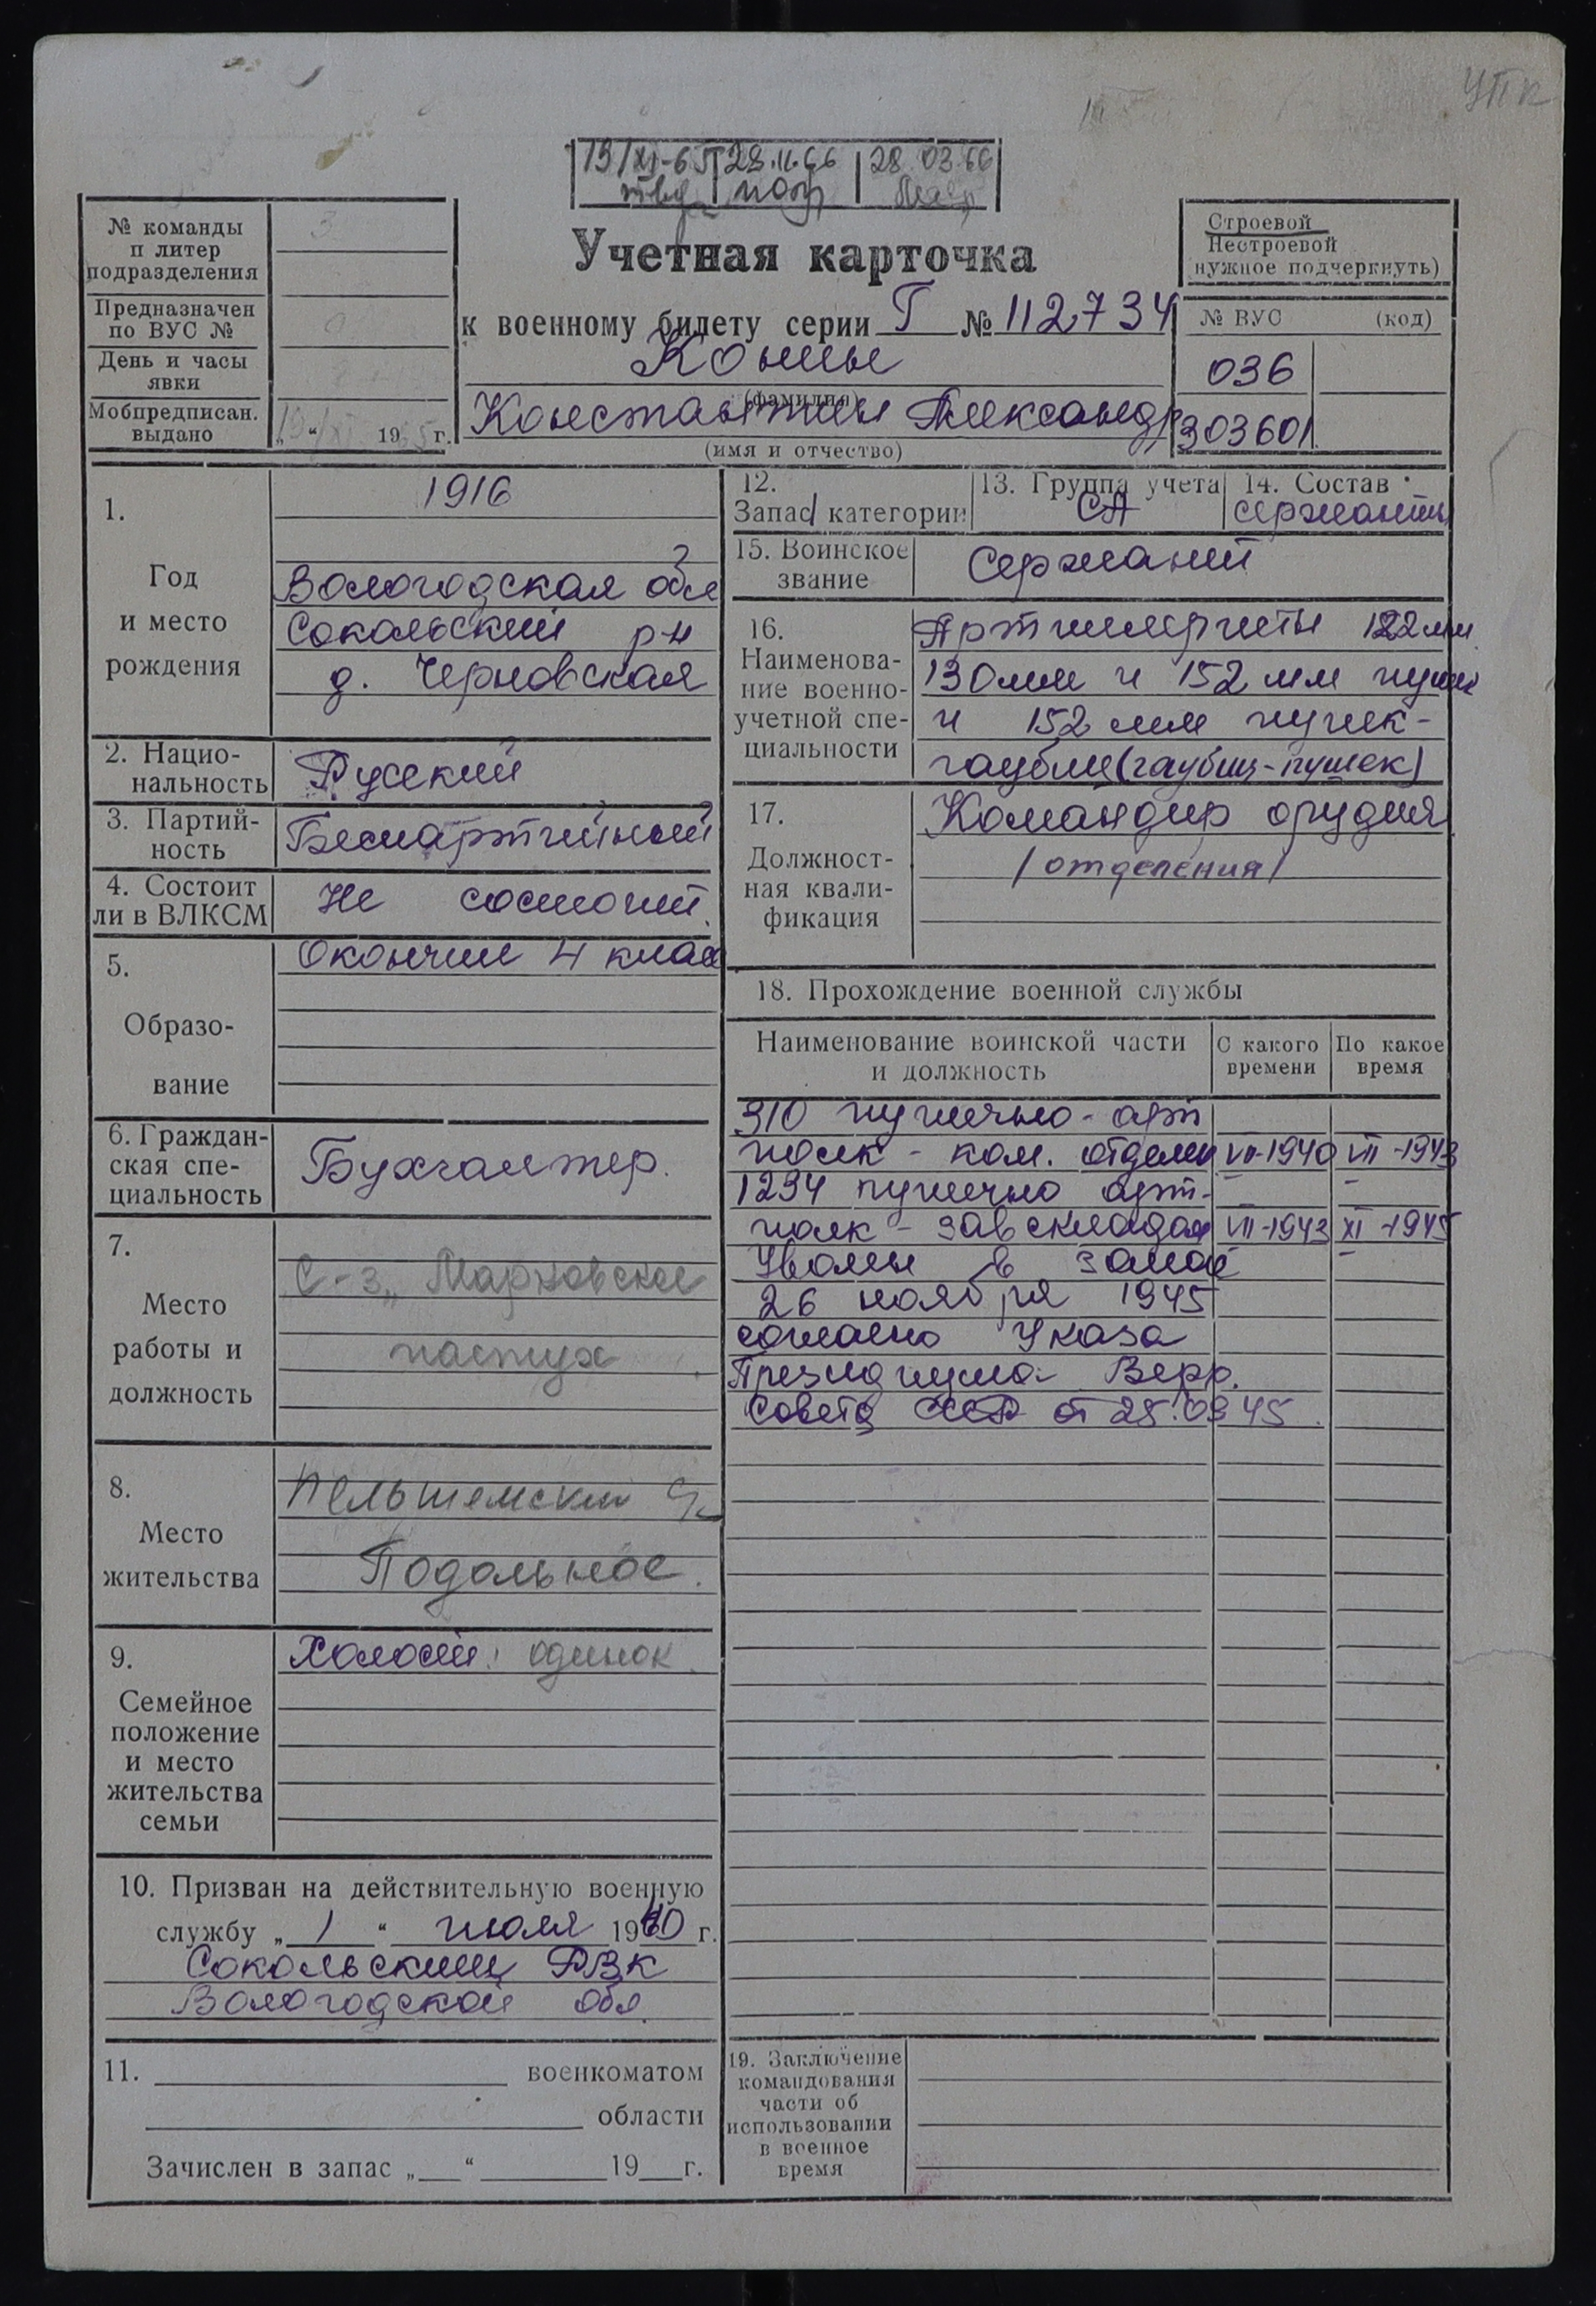 УПК
13/XI-65 28.11.66 28.03.66
Учетная карточка
к военному билету серии Г № 112734
Конин
(фамилия)
Константин Александр
(имя и отчество)
№ команды
п литер
подразделения
3
Предназначен
по ВУС №
День и часы
явки
Мобпредписан.
выдано
„ “ 19 г.
Строевой
Нестроевой
нужное подчеркнуть)
№ ВУС (код)
036
303601
1.
Год
и место
рождения
1916
Вологодская обл
Сокольский р-н
д. Черновская
2. Нацио-
нальность
Русский
3. Партий-
ность
Беспартийный
4. Состоит
ли в ВЛКСМ
Не состоит.
5.
Образо-
вание
Окончил 4 клас
6. Граждан-
ская спе-
циальность
Бухгалтер.
7.
Место
работы и
должность
С-з „Марковское
пастух
8.
Место
жительства
Пельшемский
Подольное.
9.
Семейное
положение
и место
жительства
семьи
Холост. одинок.
10. Призван на действительную военную
службу „ 1 “ июля 1940 г.
Сокольским РВК
Вологодской обл
11. военкоматом
области
Зачислен в запас „ “ 19 г.
12.
Запас / категории
13. Группа учета
СА
14. Состав
сержанты
15. Воинское
звание
Сержант
16.
Наименова-
ние военно-
учетной спе-
циальности
Артиллеристы 122 мм
130 мм и 152 мм пушек
и 152 мм пушек-
гаубиц (гаубиц-пушек)
17.
Должност-
ная квали-
фикация
Командир орудия
/отделения/
18. Прохождение военной службы
Наименование воинской части
и должность
С какого
времени
По какое
время
310 пушечно-арт
полк - ком. отделен VII-1940 VII-1943
1234 пушечно арт-
полк - зав складом VII-1943 XI-1945
Уволен в запас
26 ноября 1945
согласно Указа
Президиума Верх.
Совета СССР от 25.09.45.
19. Заключение
командования
части об
использовании
в военное
время